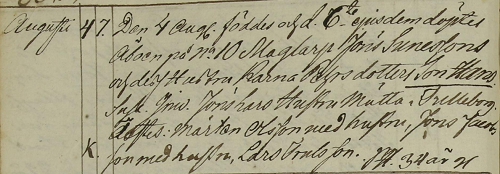 Augusti 47. Den 4 Aug. föddes och d. 6te ejusdem döptes
Aboen på No 10 Maglarp Jöns Sunessons
och dess Hustru Karna Pehrsdotters Son Hans.
Susc. Jöns Hustru Mätta, Trelleborg
Testes. Mårten Olsson med hustru, Jöns Jacob-
K. son med hustru, Lars Truls son. 34 år